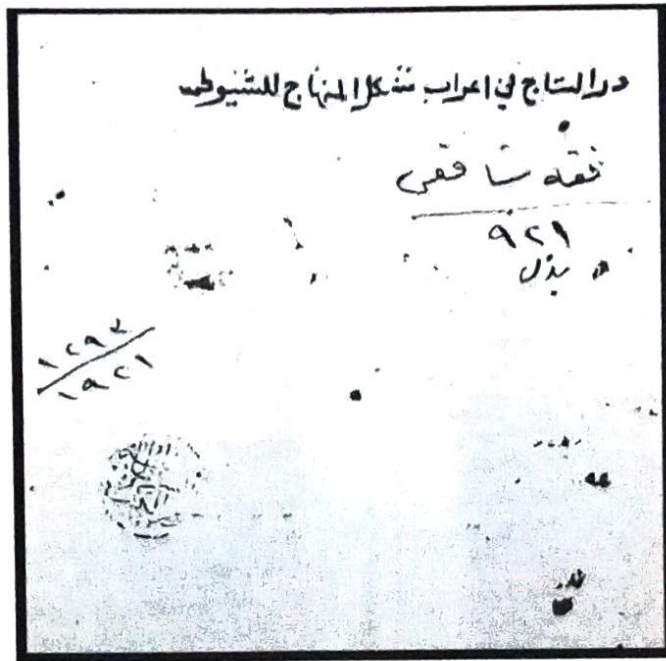 در التاج في اعراب مشكل المنهاج للسيوطي
فقه شافعى
٩٢١
١٢٩٣
١٩٢١